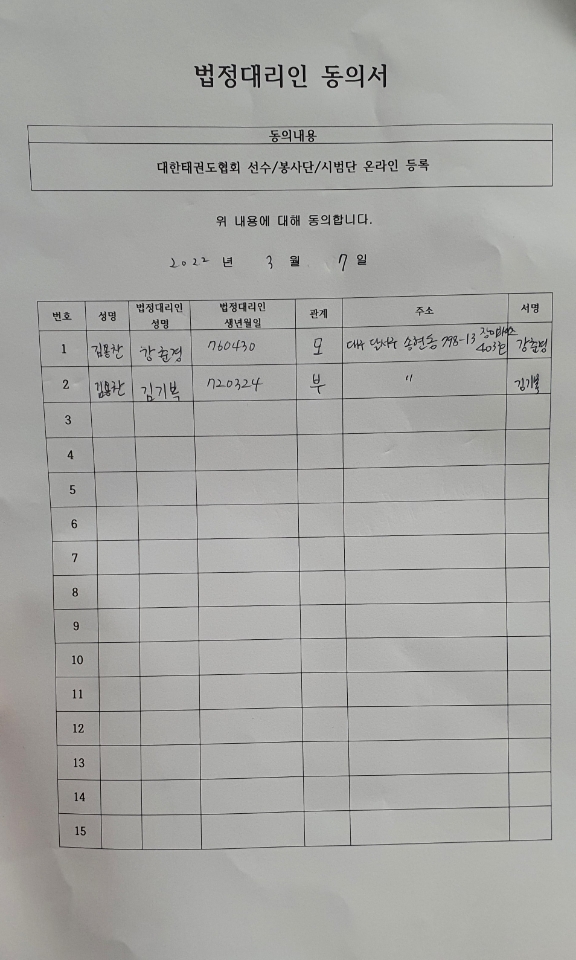 법정대리인 동의서
동의내용
대한태권도협회 선수/봉사단/시범단 온라인 등록
위 내용에 대해 동의합니다.
2022 년 3 월 7 일
번호 성명 법정대리인 성명 법정대리인 생년월일 관계 주소 서명
1 김용찬 강춘경 760430 모 대구 달서구 송현동 798-13 403호 강춘경
2 김용찬 김기복 720324 부 〃 김기복
3
4
5
6
7
8
9
10
11
12
13
14
15